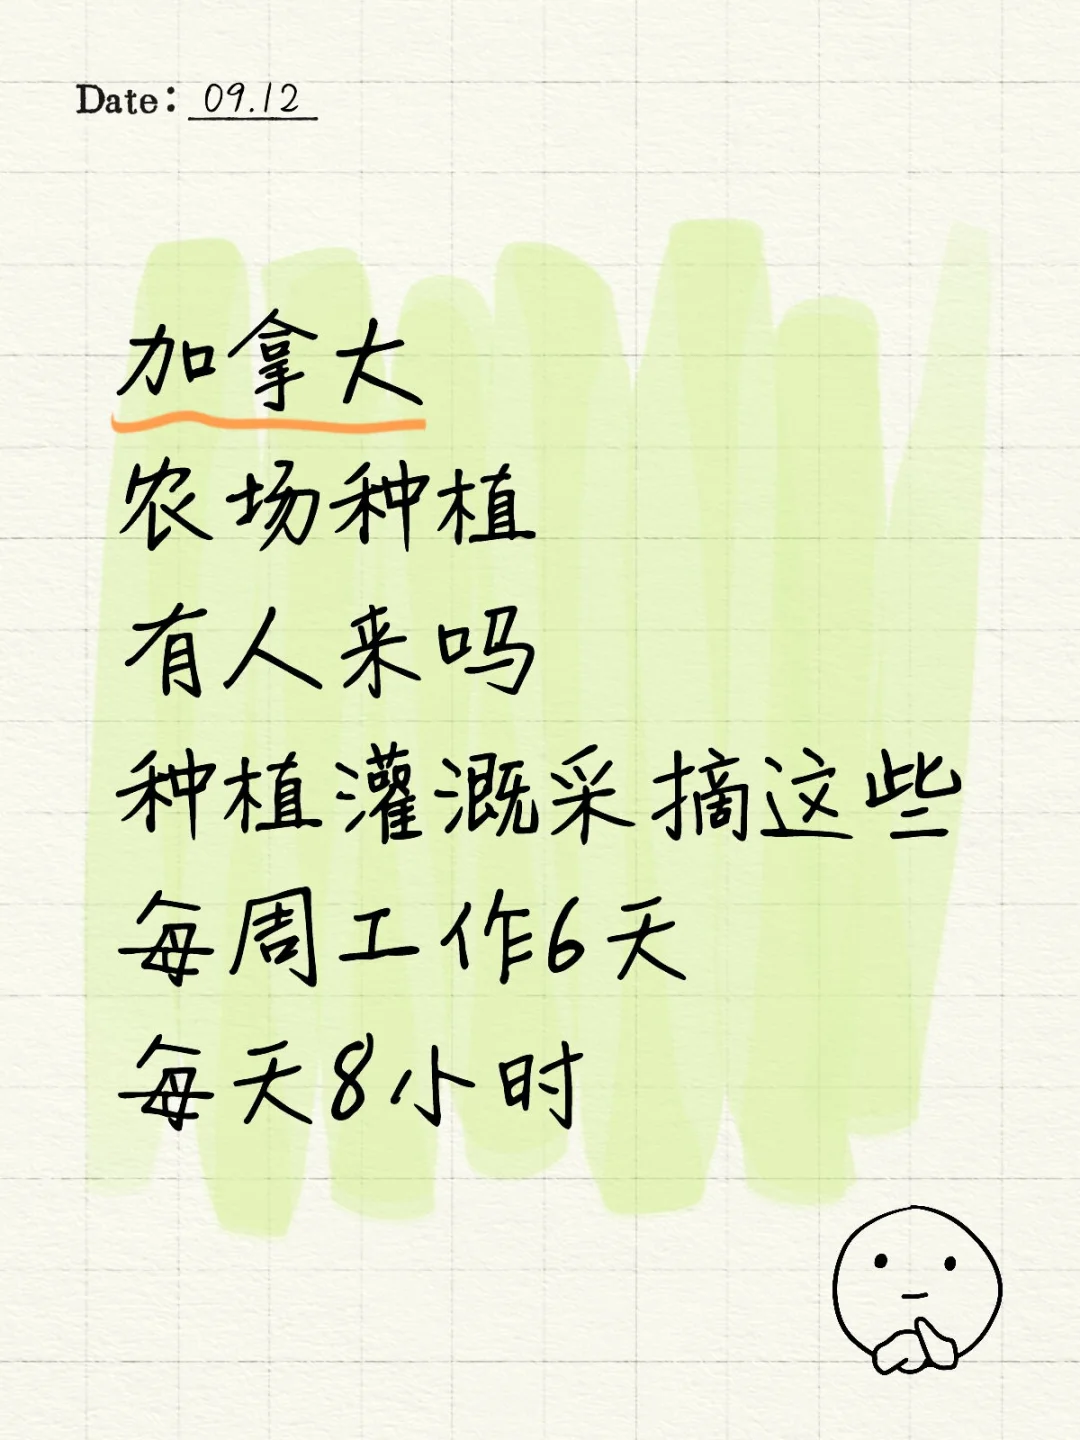 Date: 09.12
加拿大
农场种植
有人来吗
种植灌溉采摘这些
每周工作6天
每天8小时